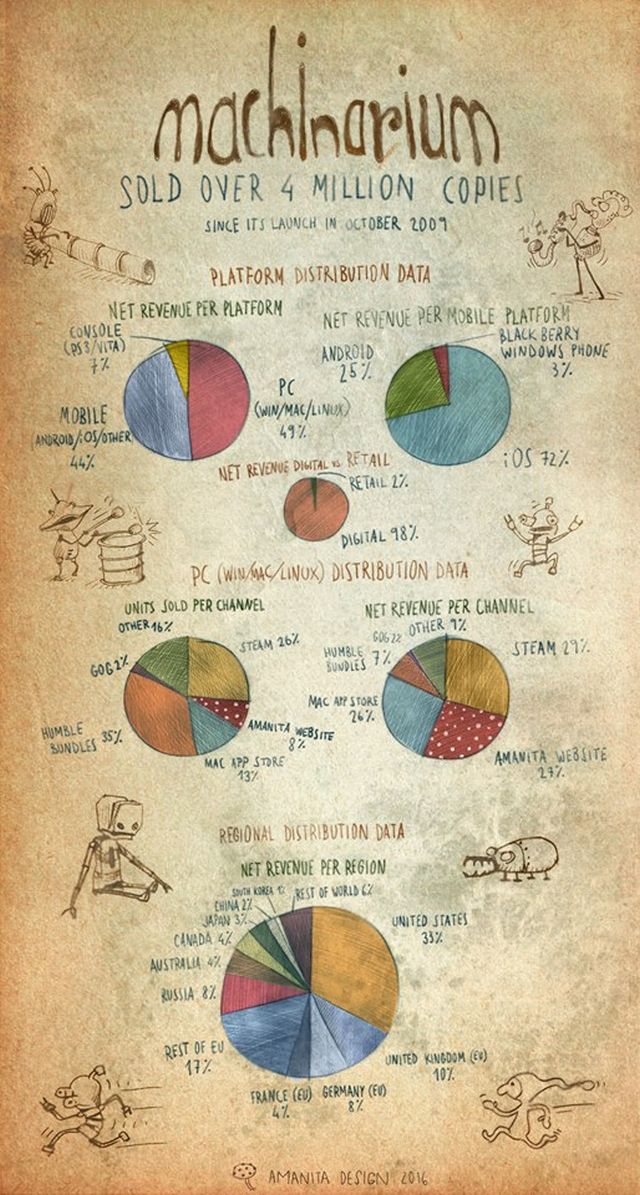 machinarium
SOLD OVER 4 MILLION COPIES
SINCE ITS LAUNCH IN OCTOBER 2009
PLATFORM DISTRIBUTION DATA
NET REVENUE PER PLATFORM
CONSOLE
(PS3/VITA)
7%
MOBILE
ANDROID/iOS/OTHER
44%
PC
(WIN/MAC/LINUX)
49%
NET REVENUE PER MOBILE PLATFORM
ANDROID
25%
BLACK BERRY
WINDOWS PHONE
3%
iOS 72%
NET REVENUE DIGITAL vs. RETAIL
RETAIL 2%
DIGITAL 98%
PC (WIN/MAC/LINUX) DISTRIBUTION DATA
UNITS SOLD PER CHANNEL
OTHER 16%
STEAM 26%
GOG 2%
HUMBLE
BUNDLES 35%
AMANITA WEBSITE
8%
MAC APP STORE
13%
NET REVENUE PER CHANNEL
OTHER 9%
GOG 2%
STEAM 29%
HUMBLE
BUNDLES 7%
MAC APP STORE
26%
AMANITA WEBSITE
27%
REGIONAL DISTRIBUTION DATA
NET REVENUE PER REGION
SOUTH KOREA 1%
REST OF WORLD 6%
CHINA 2%
JAPAN 3%
CANADA 4%
AUSTRALIA 4%
RUSSIA 8%
UNITED STATES
33%
REST OF EU
17%
UNITED KINGDOM (EU)
10%
FRANCE (EU)
4%
GERMANY (EU)
8%
AMANITA DESIGN 2016